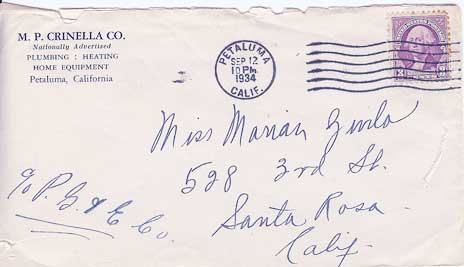 M. P. CRINELLA CO.
Nationally Advertised
PLUMBING : HEATING
HOME EQUIPMENT
Petaluma, California
PETALUMA
SEP 12
10 PM
1934
CALIF.
3
Miss Marian
528 3rd St.
Santa Rosa
Calif.
c/o P. G. & E. Co.